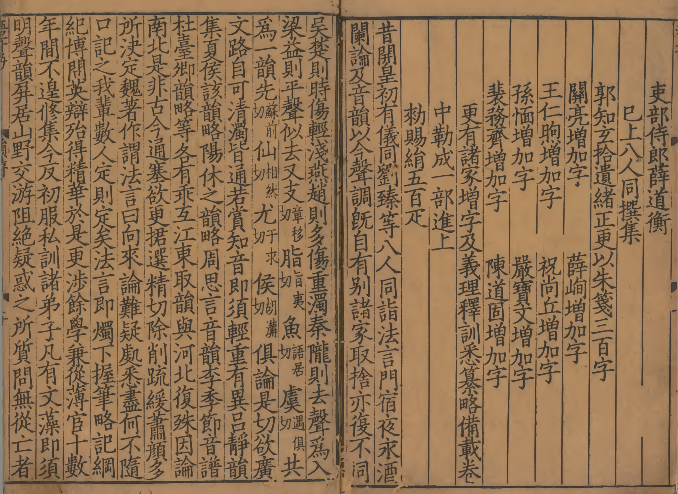 吏部侍郎薛道衡
已上八人同撰集
郭知玄拾遺緒正更以朱箋三百字
關亮增加字 薛峋增加字
王仁煦增加字 祝尚丘增加字
孫愐增加字 嚴寶文增加字
裴務齊增加字 陳道固增加字
更有諸家增字及義理釋訓悉纂略備載卷
中勒成一部進上
勑賜絹五百疋
昔開皇初有儀同劉臻等八人同詣法言門宿夜永酒
闌論及音韻以今聲調既自有別諸家取捨亦復不同
吳楚則時傷輕淺燕趙則多傷重濁秦隴則去聲爲入
梁益則平聲似去又支章移切脂旨夷切魚語居切虞遇俱切共
爲一韻先蘇前切仙相然切尤于求切侯胡溝切俱論是切欲廣
文路自可清濁皆通若賞知音即須輕重有異呂靜韻
集夏侯該韻略陽休之韻略周思言音韻李季節音譜
杜臺卿韻略等各有乖互江東取韻與河北復殊因論
南北是非古今通塞欲更捃選精切除削疏緩蕭顏多
所決定魏著作謂法言曰向來論難疑處悉盡何不隨
口記之我輩數人定則定矣法言即燭下握筆略記綱
紀博問英辯殆得精華於是更涉餘學兼從薄官十數
年間不遑修集今反初服私訓諸弟子凡有文藻即須
明聲韻屏居山野交遊阻絕疑惑之所質問無從亡者